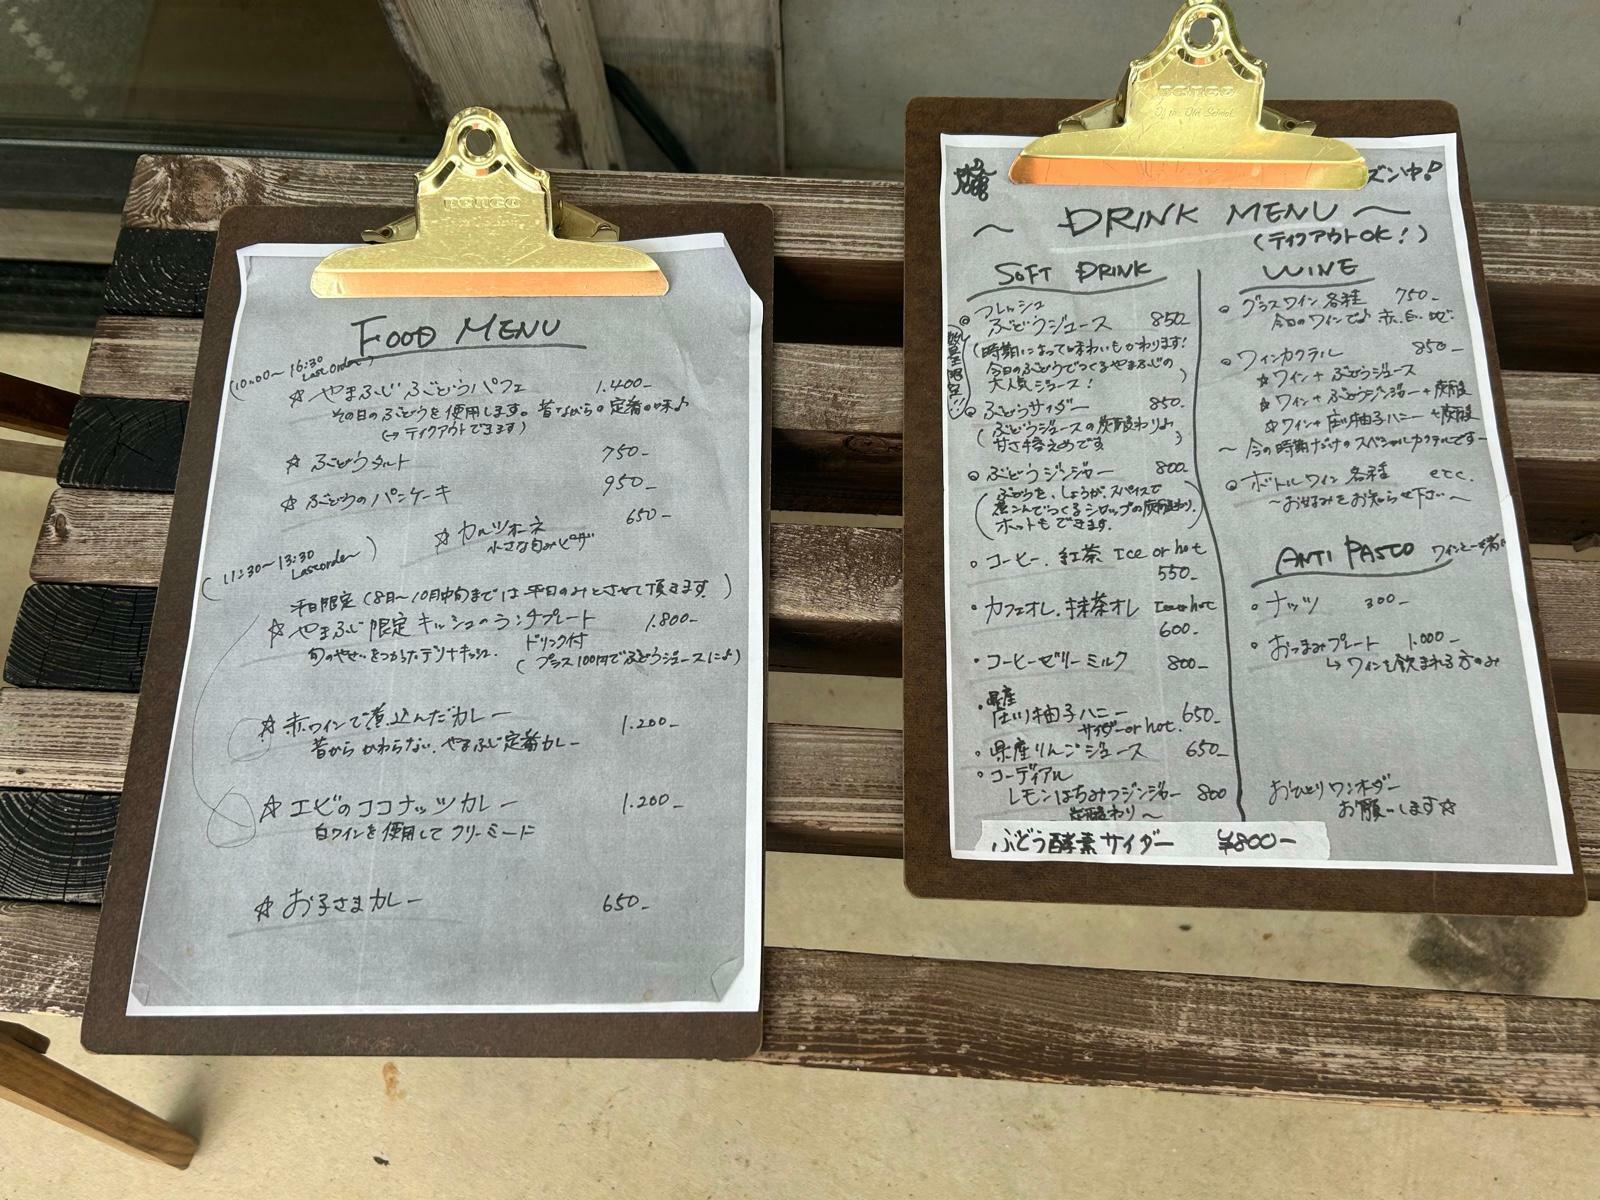 PENCO
FOOD MENU
(10:00〜16:30
Last order)
☆ やまふじ ぶどうパフェ 1.400-
その日のぶどうを使用します。昔ながらの定番の味♪
(→ テイクアウトできます)
☆ ぶどうタルト 750-
☆ ぶどうのパンケーキ 950-
☆ カルツォーネ 650-
小さな包みピザ
(11:30〜13:30
Last order)
平日限定 (8月〜10月中旬までは平日のみとさせて頂きます)
☆ やまふじ限定 キッシュのランチプレート 1.800-
ドリンク付
旬のやさいをつかったデリナキッシュ
(プラス100円でぶどうジュースに♪)
☆ 赤ワインで煮込んだカレー 1.200-
昔からかわらない、やまふじ定番カレー
☆ エビのココナッツカレー 1.200-
白ワインを使用してクリーミード
☆ お子さまカレー 650-
PENCO
Of the Old School
ズン中!
〜 DRINK MENU 〜
(テイクアウトOK!)
SOFT DRINK
◎ フレッシュ
ぶどうジュース 850-
(時期によって味わいもかわります!
今日のぶどうでつくるやまふじの
大人気ジュース!)
◎ ぶどうサイダー 850-
(ぶどうジュースの炭酸わり♪
甘さ控えめです)
◎ ぶどうジンジャー 800-
(ぶどうを、しょうが、スパイスで
煮こんでつくるシロップの炭酸わり.
ホットもできます.
・コーヒー、紅茶 Ice or hot
550-
・カフェオレ、抹茶オレ Ice or hot
600-
・コーヒーゼリーミルク 800-
・県産
庄川柚子ハニー 650-
サイダー or hot.
・県産りんごジュース 650-
・コーディアル
レモンはちみつジンジャー 800
炭酸わり〜
ぶどう酵素サイダー ¥800-
WINE
◎ グラスワイン 各種 750-
今日のワインで♪ 赤、白、etc
◎ ワインカクテル 850-
☆ ワイン+ぶどうジュース
☆ ワイン+ぶどうジンジャー+炭酸
☆ ワイン+庄川柚子ハニー+炭酸
〜今の時期だけのスペシャルカクテルです〜
◎ ボトルワイン 各種 etc.
〜お好みをお知らせ下さい〜
ANTI PASTO ワインと一緒に
・ナッツ 300-
・おつまみプレート 1.000-
↳ ワインを飲まれる方のみ
おひとりワンオーダー
お願いします☆